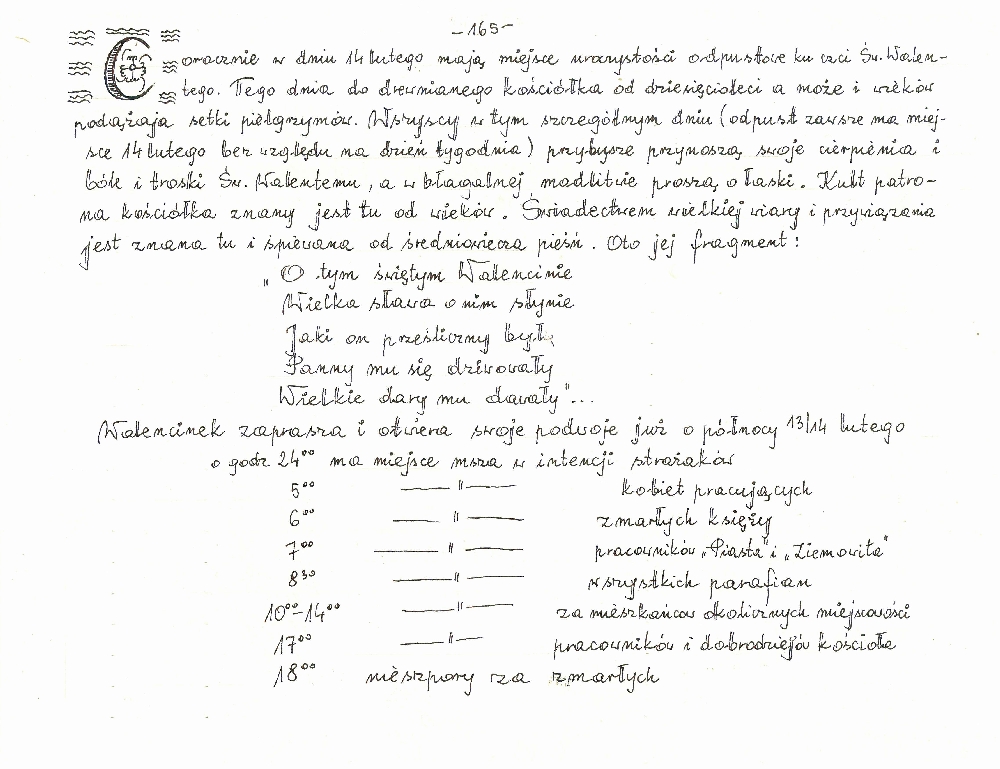 -165-
Corocznie w dniu 14 lutego mają miejsce uroczystości odpustowe ku czci Św. Walen-
tego. Tego dnia do drewnianego kościółka od dziesięcioleci a może i wieków
podążają setki pielgrzymów. Wszyscy w tym szczególnym dniu (odpust zawsze ma miej-
sce 14 lutego bez względu na dzień tygodnia) przybysze przynoszą swoje cierpienia i
bóle i troski Św. Walentemu, a w błagalnej modlitwie proszą o łaski. Kult patro-
na kościółka znany jest tu od wieków. Świadectwem wielkiej wiary i przywiązania
jest znana tu i śpiewana od średniowiecza pieśń. Oto jej fragment:
„O tym świętym Walencinie
Wielka sława o nim słynie
Jaki on prześliczny był,
Panny mu się dziwowały
Wielkie dary mu dawały"...
Walencinek zaprasza i otwiera swoje podwoje już o północy 13/14 lutego
o godz. 24⁰⁰ ma miejsce msza w intencji strażaków
5⁰⁰ —— " —— kobiet pracujących
6⁰⁰ —— " —— zmarłych księży
7⁰⁰ —— " —— pracowników „Piasta" i „Ziemowita"
8³⁰ —— " —— wszystkich parafian
10⁰⁰-14⁰⁰ —— " —— za mieszkańców okolicznych miejscowości
17⁰⁰ —— " —— pracowników i dobrodziejów kościoła
18⁰⁰ nieszpory za zmarłych